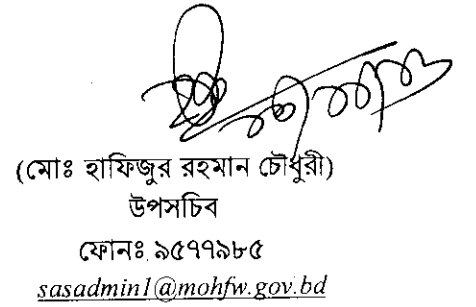 (মোঃ হাফিজুর রহমান চৌধুরী)
উপসচিব
ফোনঃ ৯৫৭৭৯৮৫
sasadmin1@mohfw.gov.bd